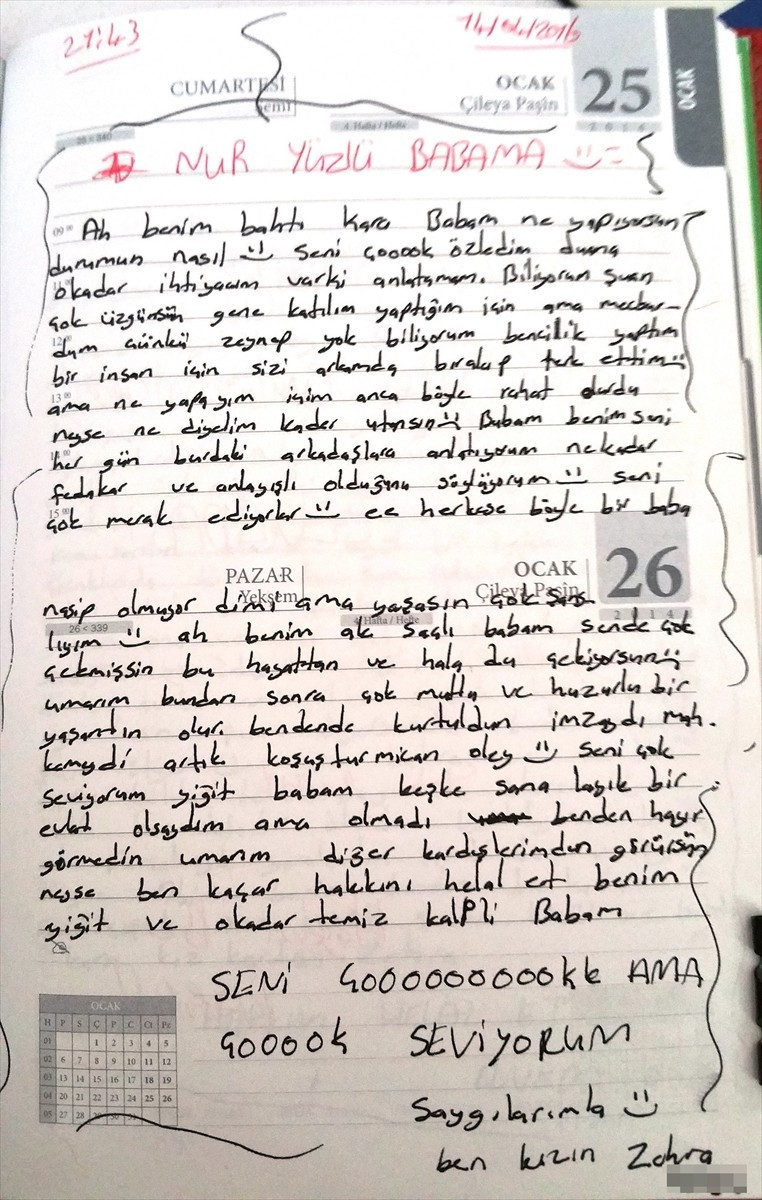 21:43
14/04/2016
CUMARTESİ
Şemi
OCAK
Çileya Paşîn
25
OCAK
4. Hafta / Hefte
2 0 1 4
NUR YÜZLÜ BABAMA
09 00 Ah benim bahtı kara Babam ne yapıyorsun?
durumun nasıl seni çooook özledim duana
okadar ihtiyacım varki anlatamam. Biliyorum şuan
çok üzgünsün gene katılım yaptığım için ama mecbur-
dum çünkü zeynep yok biliyorum bencilik yaptım
bir insan için sizi arkamda bırakıp terk ettim
ama ne yapayım içim anca böyle rahat durdu
neyse ne diyelim kader utansın Babam benim seni
her gün burdaki arkadaşlara anlatıyorum nekadar
fedakar ve anlayışlı olduğunu söylüyorum seni
çok merak ediyorlar ee herkese böyle bir baba
PAZAR
Yekşem
OCAK
Çileya Paşîn
26
26 < 339
4. Hafta / Hefte
2 0 1 4
nasip olmuyor dimi ama yaşasın çok şans-
lıyım ah benim ak saçlı babam sende çok
çekmişsin bu hayattan ve hala da çekiyorsun
umarım bundan sonra çok mutlu ve huzurlu bir
yaşantın olur. bendende kurtuldun imzaydı mah-
kemeydi artık koşuşturmican oley seni çok
seviyorum yiğit babam keşke sana layık bir
evlat olsaydım ama olmadı benden hayır
görmedin umarım diğer kardeşlerimden görürsün
neyse ben kaçar hakkını helal et benim
yiğit ve okadar temiz kalpli Babam
SENİ ÇOOOOOOOOOOkk AMA
ÇOOOOk SEVİYORUM
Saygılarımla
ben kızın Zohra
OCAK
H P S Ç P C Ct Pz
01 1 2 3 4 5
02 6 7 8 9 10 11 12
03 13 14 15 16 17 18 19
04 20 21 22 23 24 25 26
05 27 28 29 30 31